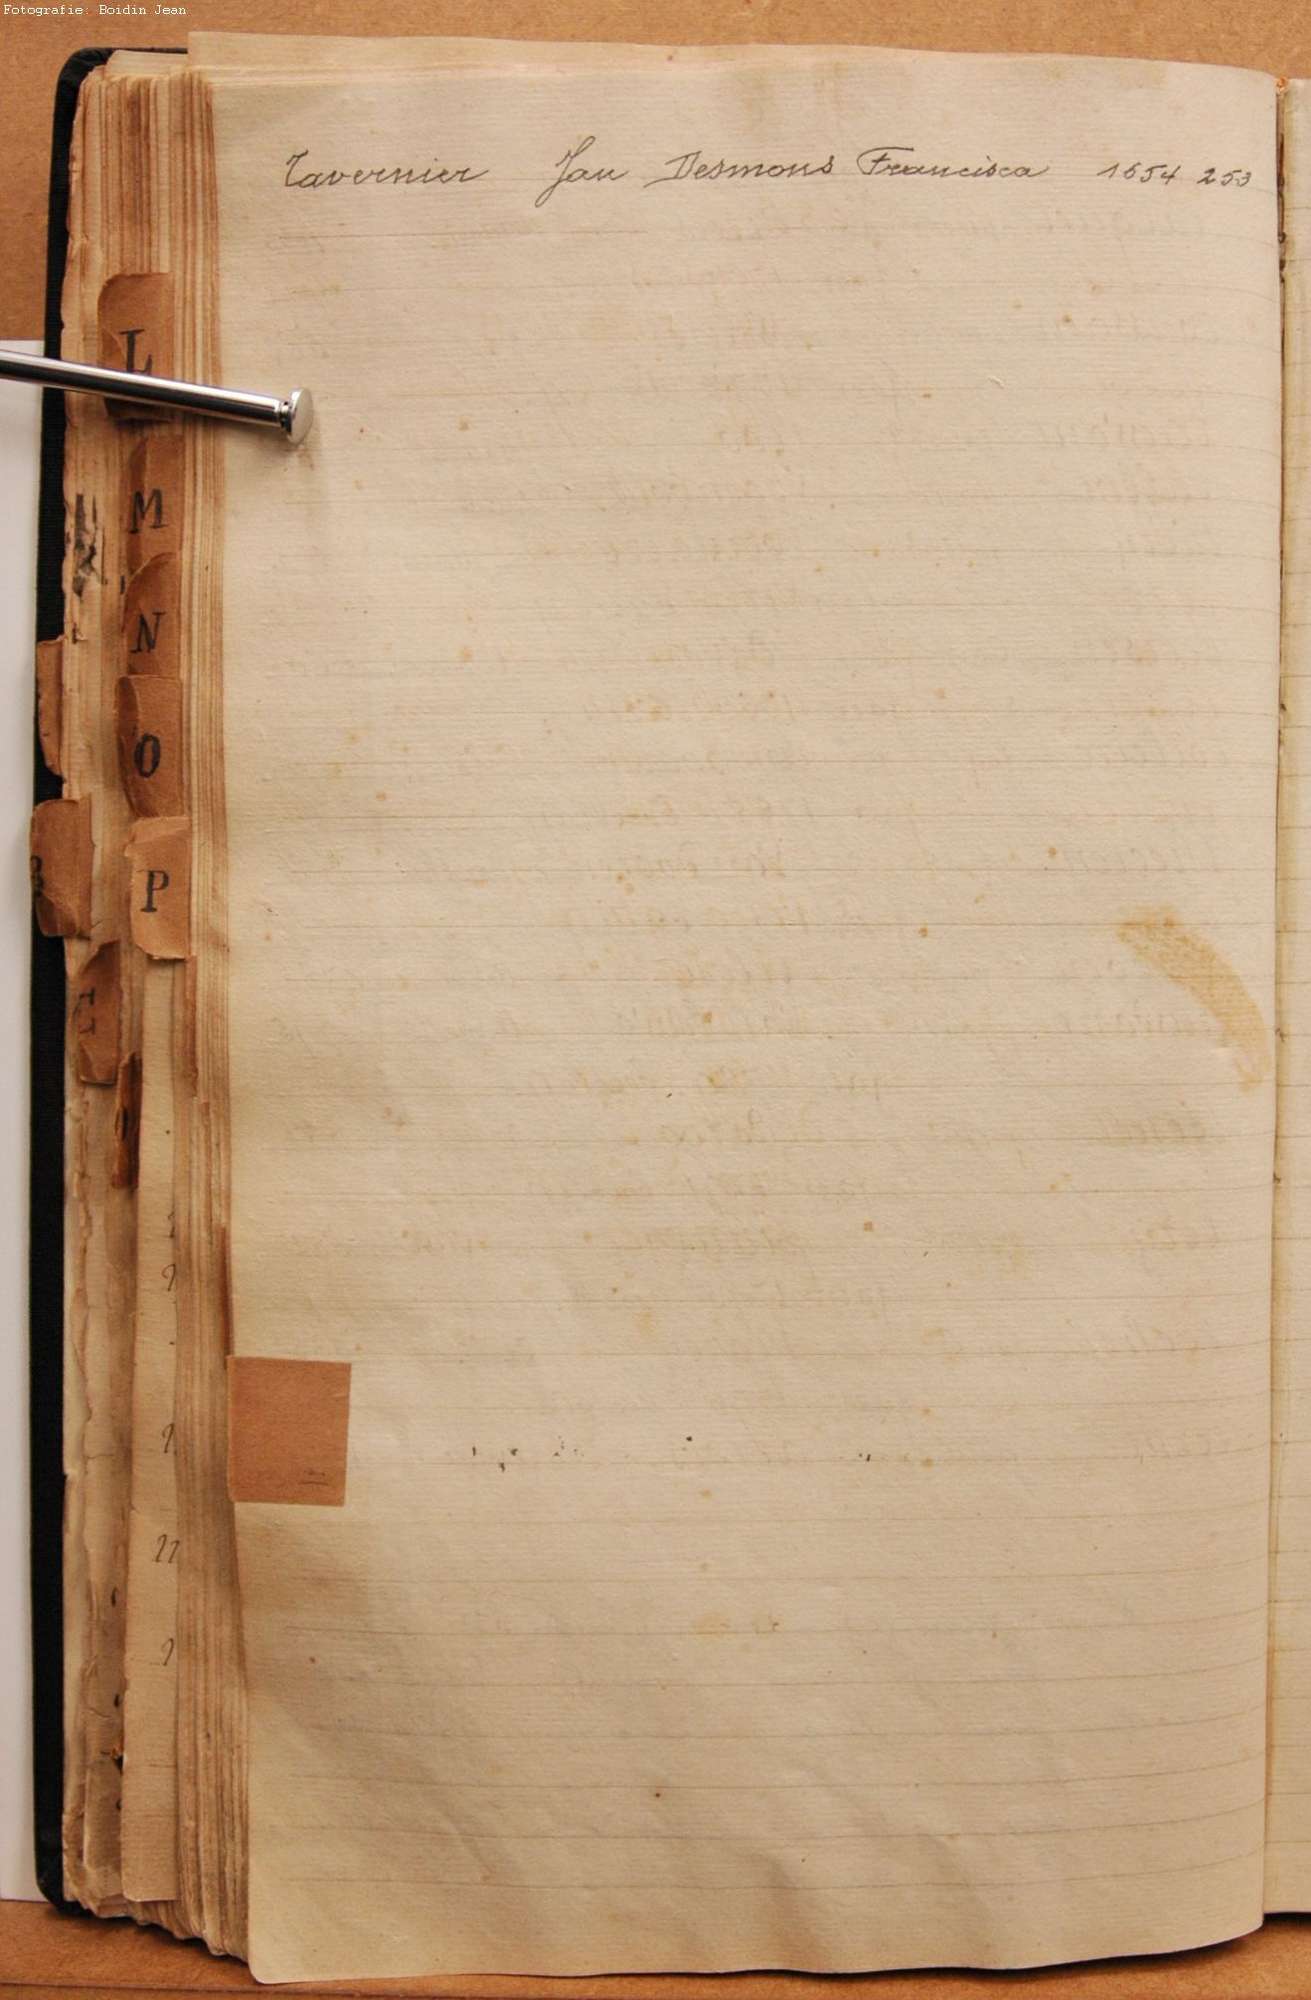 Fotografie: Boidin Jean
Tavernier Jan Desmons Francisca 1654 253
L
M
N
O
P